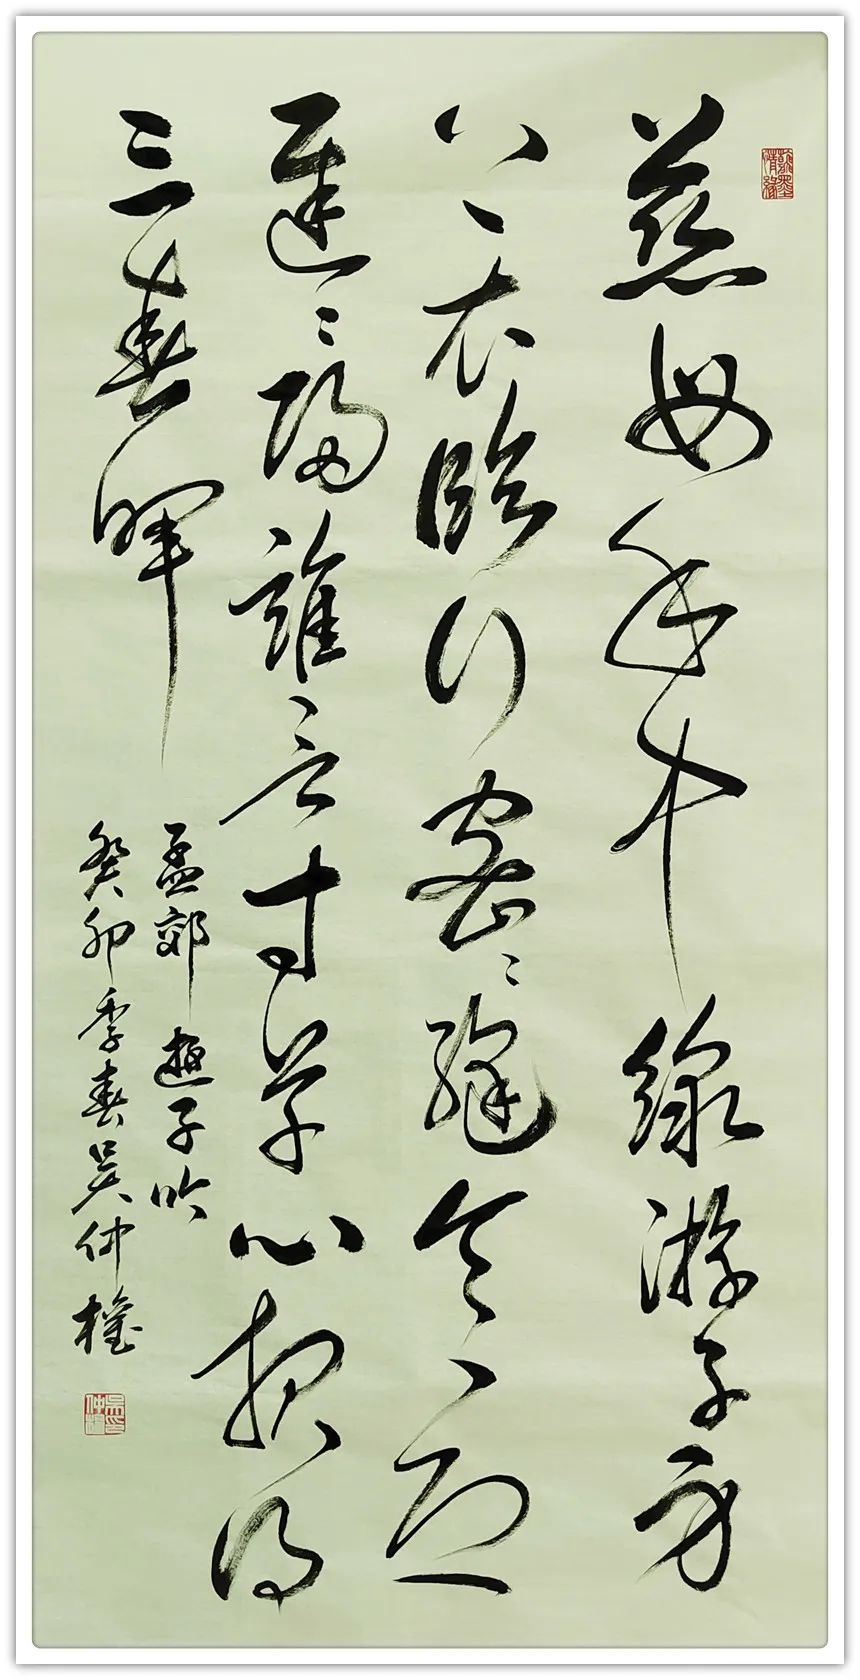 慈母手中線游子身
上衣臨行密〻縫意恐
遲〻歸誰言寸草心報得
三春暉
孟郊遊子吟
癸卯季春吳仲權
翰墨情緣